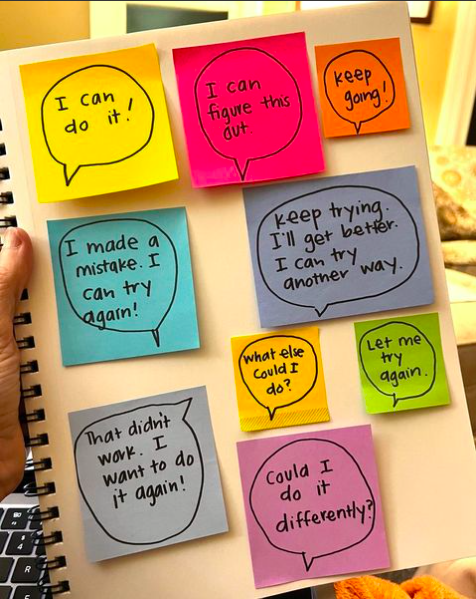 I can
do it!
I can
figure this
out
keep
going!
I made a
mistake. I
can try
again!
keep trying.
I'll get better.
I can try
another way.
What else
could I
do?
Let me
try
again.
That didn't
work. I
want to do
it again!
Could I
do it
differently?